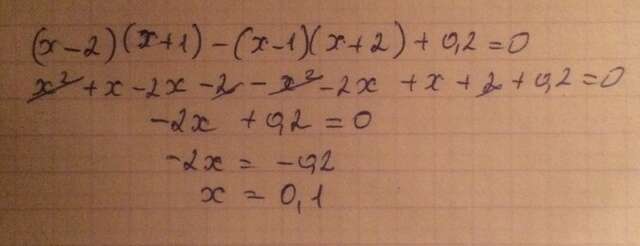 (x-2)(x+1)-(x-1)(x+2)+0,2=0
x²+x-2x-2-x²-2x+x+2+0,2=0
-2x+0,2=0
-2x=-0,2
x=0,1